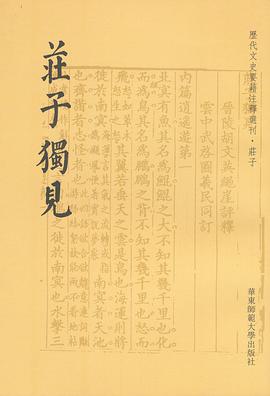 歷代文史要籍注釋選刊·莊子
華東師範大學出版社
晉陵胡文英繩崖評釋
雲中武啓圖義民同訂
內篇逍遙遊第一
北冥有魚其名爲鯤鯤之大不知其幾千里也化
而爲鳥其名爲鵬鵬之背不知其幾千里也怒而
飛其翼若垂天之雲是鳥也海運則將
徙於南冥南冥者天池
也齊諧者志怪者也
之徙於南冥也水擊三
莊子獨見